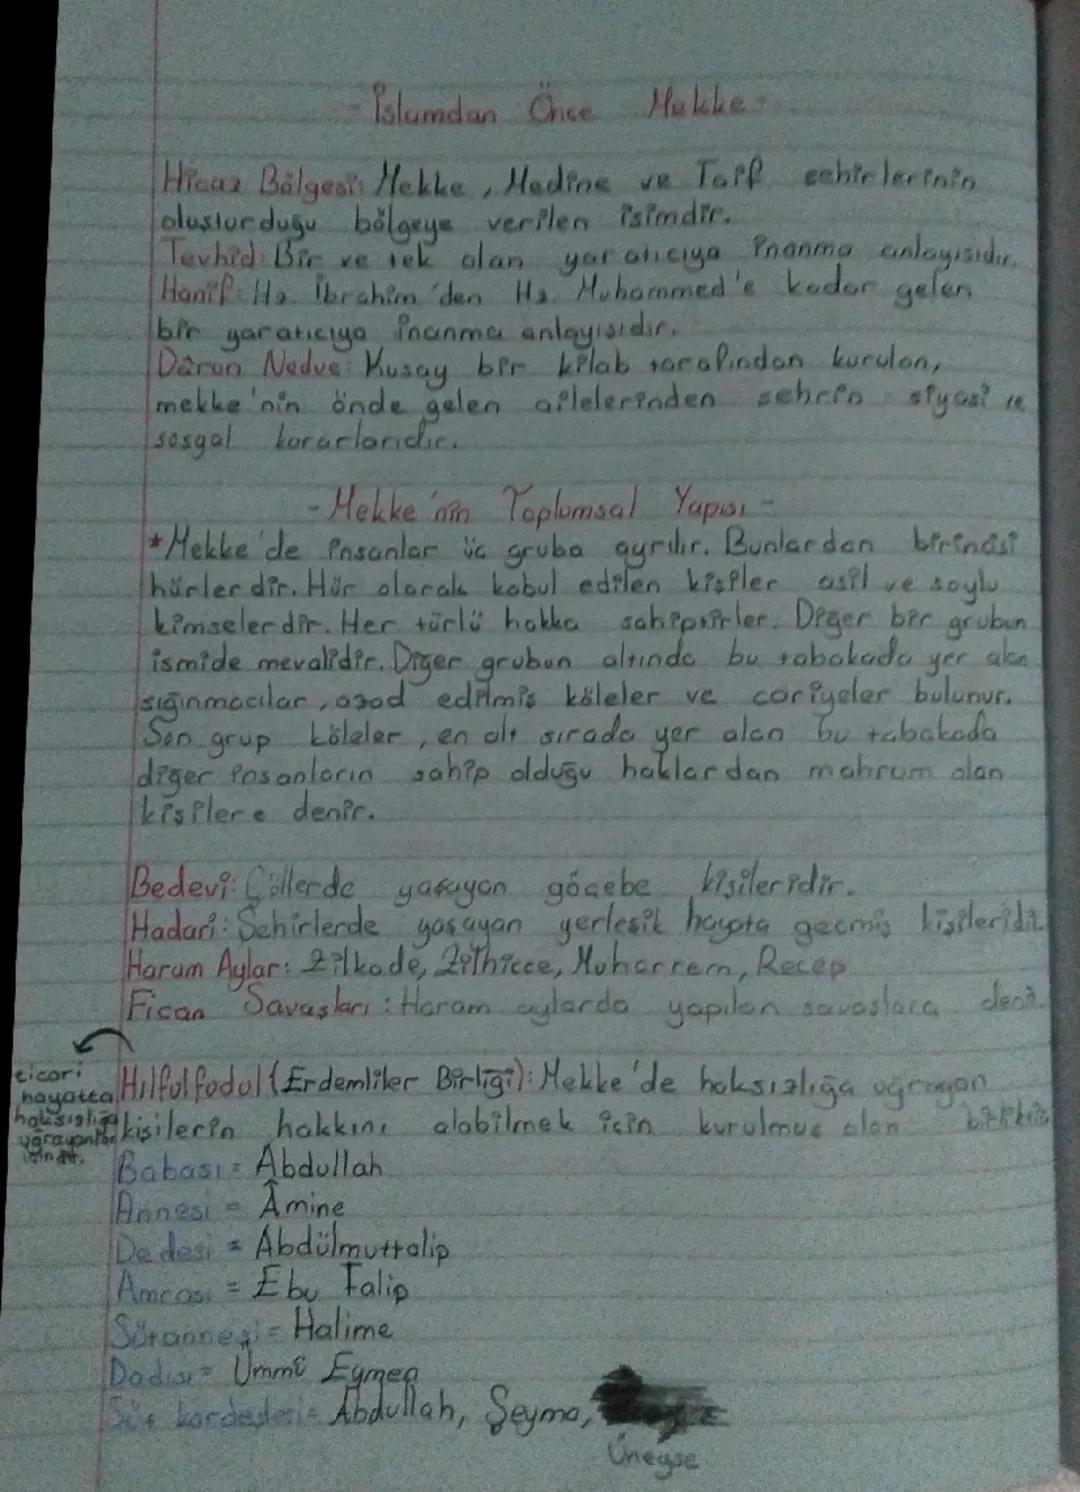 - İslamdan Önce Mekke -
Hicaz Bölgesi: Mekke, Medine ve Taif şehirlerinin
oluşturduğu bölgeye verilen isimdir.
Tevhid: Bir ve tek olan yaratıcıya inanma anlayışıdır.
Hanif: Hz. İbrahim'den Hz. Muhammed'e kadar gelen
bir yaratıcıya inanma anlayışıdır.
Dârun Nedve: Kusay bir kilab tarafından kurulan,
mekke'nin önde gelen ailelerinden şehrin siyasi ve
sosyal kararlarıdır.
- Mekke'nin Toplumsal Yapısı -
*Mekke'de insanlar üç gruba ayrılır. Bunlardan birincisi
hürlerdir. Hür olarak kabul edilen kişiler asil ve soylu
kimselerdir. Her türlü hakka sahiptirler. Diğer bir grubun
ismide mevalidir. Diğer grubun altında bu tabakada yer alan
sığınmacılar, azad edilmiş köleler ve cariyeler bulunur.
Son grup köleler, en alt sırada yer alan bu tabakada
diğer insanların sahip olduğu haklardan mahrum olan
kişilere denir.
Bedevi: Çöllerde yaşayan göçebe kişileridir.
Hadari: Şehirlerde yaşayan yerleşik hayata geçmiş kişileridir.
Haram Aylar: Zilkade, Zilhicce, Muharrem, Recep
Fican Savaşları: Haram aylarda yapılan savaşlara denir.
Hılfulfudul (Erdemliler Birliği): Mekke'de haksızlığa uğrayan
kişilerin hakkını alabilmek için kurulmuş olan
ticari
hayatta
haksızlığa
uğrayanlar
içindir.
Babası = Abdullah
Annesi = Âmine
Dedesi = Abdülmuttalip
Amcası = Ebu Talip
Sütannesi = Halime
Dadısı = Ümmü Eymen
Süt kardeşleri = Abdullah, Şeyma,
Üneyse